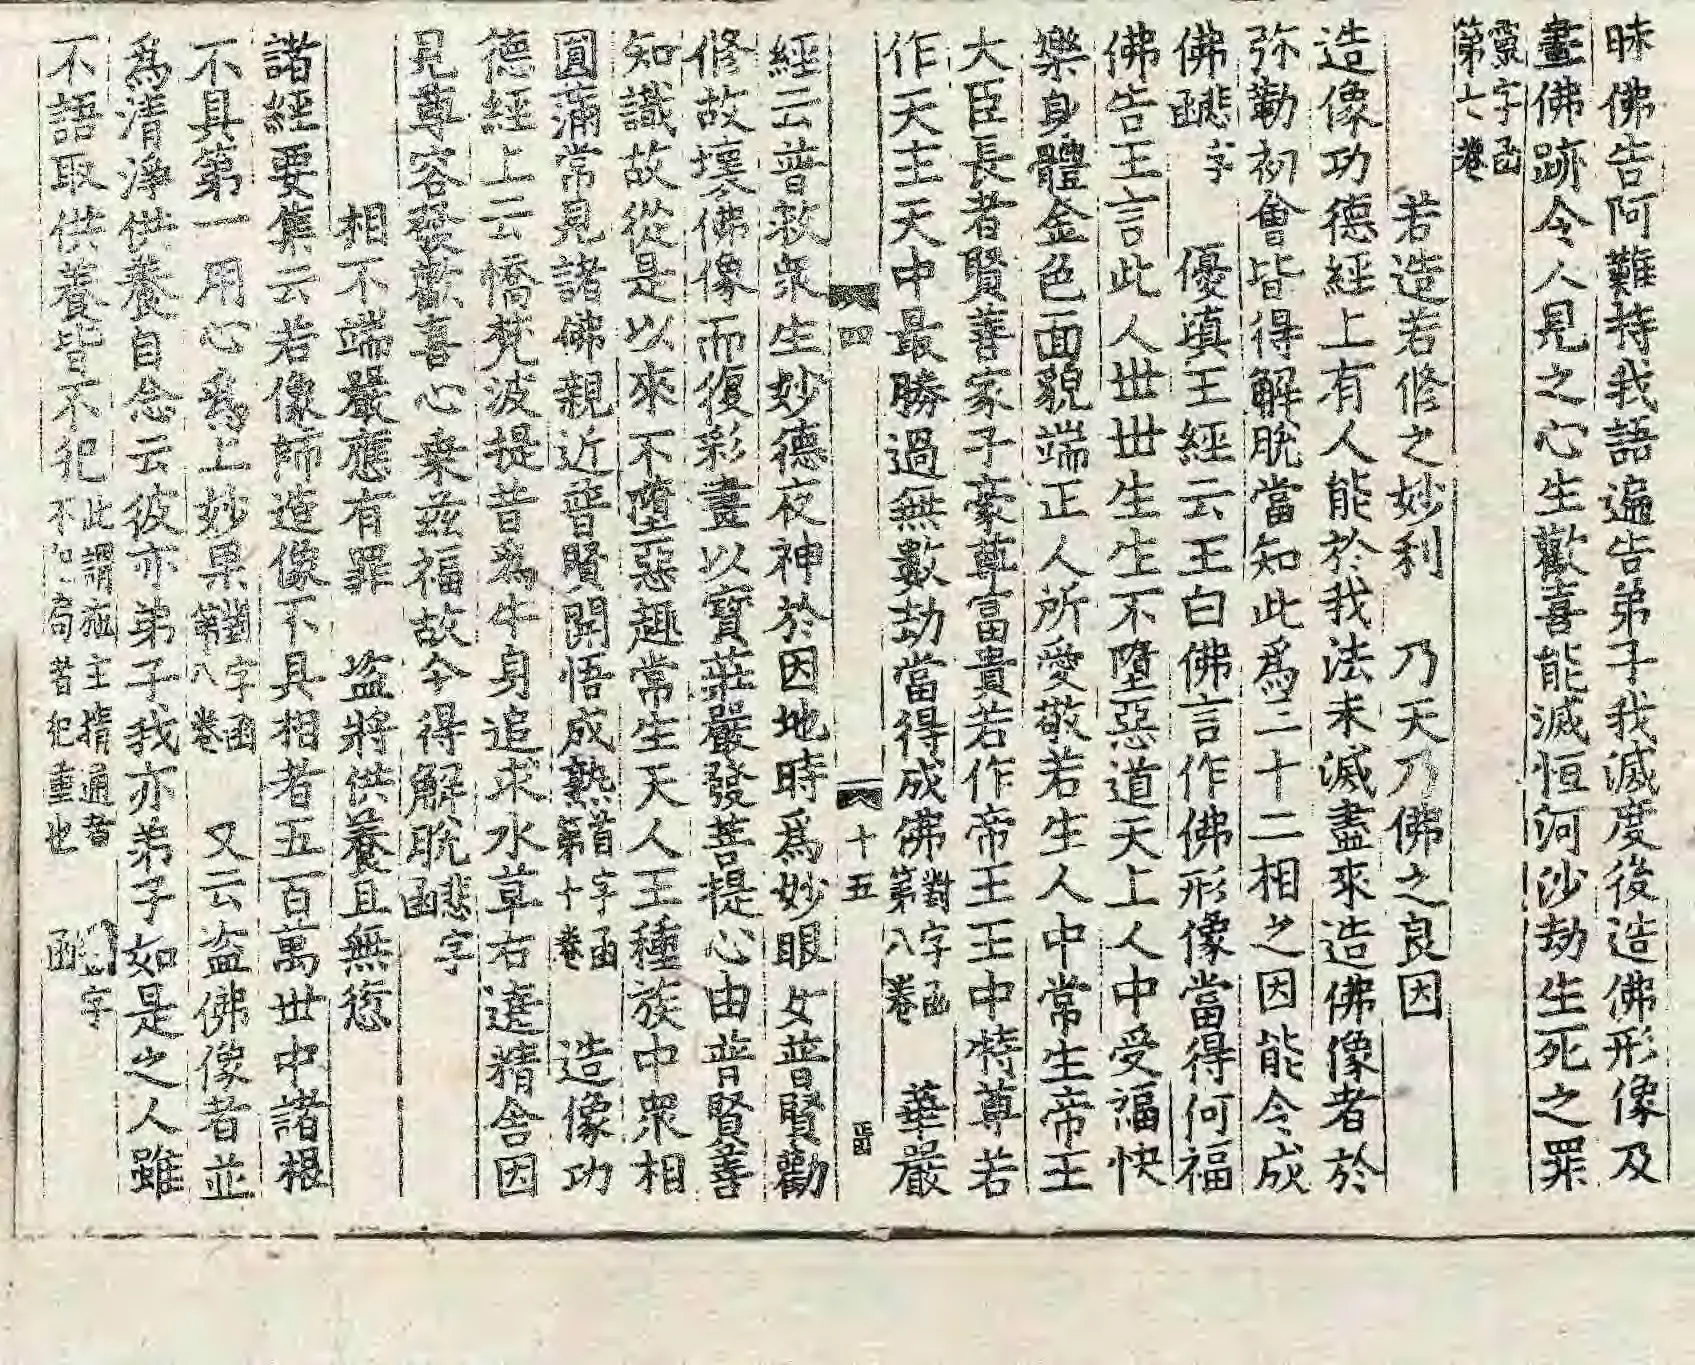 昧佛告阿難持我語遍告弟子我滅度後造佛形像及
畫佛跡令人見之心生歡喜能滅恒河沙劫生死之罪
靈字函
第七卷
若造若修之妙利 乃天乃佛之良因
造像功德經上有人能於我法未滅盡來造佛像者於
弥勒初會皆得解脫當知此爲三十二相之因能令成
佛 悲字函 優塡王經云王白佛言作佛形像當得何福
佛告王言此人世世生生不墮惡道天上人中受福快
樂身體金色面貌端正人所愛敬若生人中常生帝王
大臣長者賢善家子豪尊富貴若作帝王王中特尊若
作天主天中最勝過無數劫當得成佛 對字函第八卷 華嚴
四 十五 正因
經云普救衆生妙德夜神於因地時爲妙眼女普賢勸
修故壞佛像而復彩畫以寶莊嚴發菩提心由普賢善
知識故從是以來不墮惡趣常生天人王種族中衆相
圓滿常見諸佛親近普賢開悟成熟 首字函第十卷 造像功
德經上云憍梵波提昔爲牛身追求水草右遶精舍因
見尊容發歡喜心乘茲福故今得解脫 悲字函
相不端嚴應有罪 盜將供養且無愆
諸經要集云若像師造像不具相者五百萬世中諸根
不具第一用心爲上妙果 字函第八卷 又云盜佛像者並
爲清淨供養自念云彼亦弟子我亦弟子如是之人雖
不語取供養皆不犯 此謂施主情通者
不 局者犯重也 字函